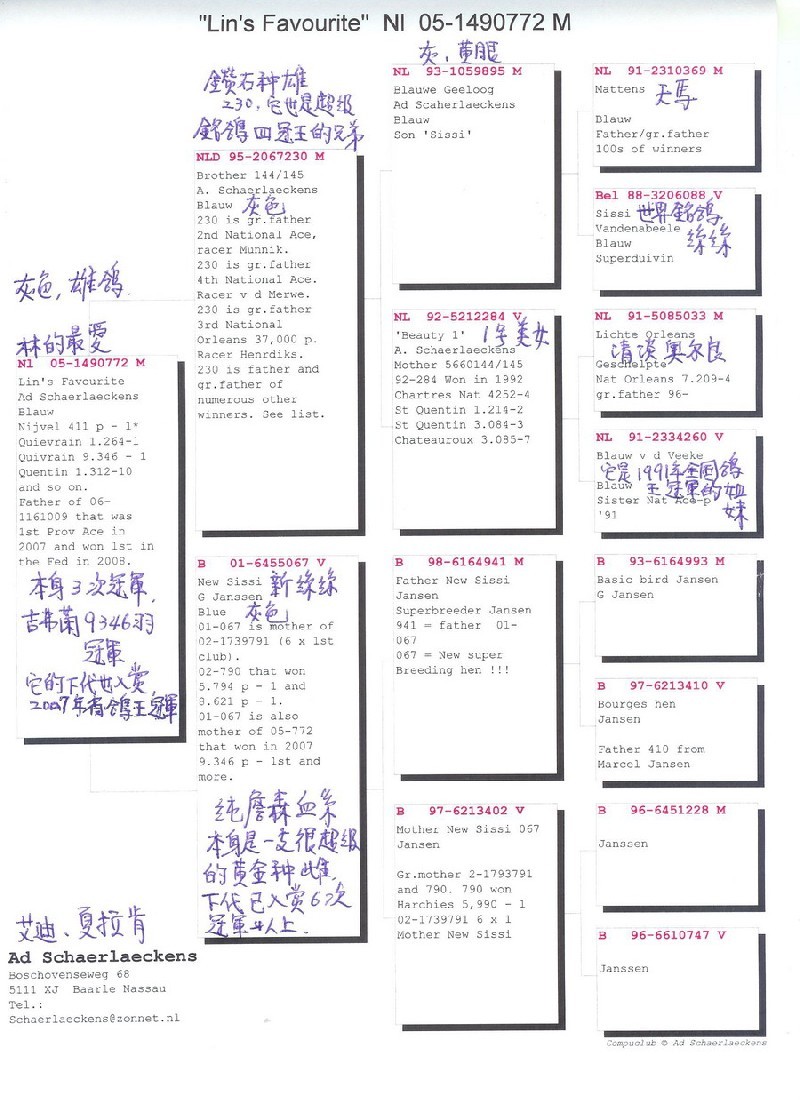 "Lin's Favourite" Nl 05-1490772 M
灰色,雄鴿
林的最愛
Nl 05-1490772 M
Lin's Favourite
Ad Schaerlaeckens
Blauw
Nijvel 411 p - 1*
Quievrain 1.264-1
Quivrain 9.346 - 1
Quentin 1.312-10
and so on.
Father of 06-
1161009 that was
1st Prov Ace in
2007 and won 1st in
the Fed in 2008.
本身3次冠軍,
吉弗蘭9346羽
冠軍
它的下代也入賞,
2007年有鴿王冠軍
鑽石种雄
230,它也是超级
銘鴿四冠王的兄弟
NLD 95-2067230 M
Brother 144/145
A. Schaerlaeckens
Blauw 灰色
230 is gr.father
2nd National Ace,
racer Munnik.
230 is gr.father
4th National Ace.
Racer v d Merwe.
230 is gr.father
3rd National
Orleans 37,000 p.
Racer Henrdiks.
230 is father and
gr.father of
numerous other
winners. See list.
B 01-6455067 V
New Sissi 新絲絲
G Janssen
Blue 灰色
01-067 is mother of
02-1739791 (6 x 1st
club).
02-790 that won
5.794 p - 1 and
3.621 p - 1.
01-067 is also
mother of 05-772
that won in 2007
9.346 p - 1st and
more.
纯詹森血系
本身是一支很超级
的黄金种雌,
下代已入賞6次
冠軍以上.
灰,黄眼
NL 93-1059895 M
Blauwe Geeloog
Ad Scaherlaeckens
Blauw
Son 'Sissi'
NL 92-5212284 V
'Beauty 1' 1号美女
A. Schaerlaeckens
Mother 5660144/145
92-284 Won in 1992
Chartres Nat 4252-4
St Quentin 1.214-2
St Quentin 3.084-3
Chateauroux 3.085-7
B 98-6164941 M
Father New Sissi
Jansen
Superbreeder Jansen
941 = father 01-
067
067 = New super
Breeding hen !!!
B 97-6213402 V
Mother New Sissi 067
Jansen
Gr.mother 2-1793791
and 790. 790 won
Harchies 5,990 - 1
02-1739791 6 x 1
Mother New Sissi
NL 91-2310369 M
Nattens 天馬
Blauw
Father/gr.father
100s of winners
Bel 88-3206088 V
Sissi 世界銘鴿
Vandenabeele 絲絲
Blauw
Superduivin
NL 91-5085033 M
Lichte Orleans
清淡奥尔良
Geschelpte
Nat Orleans 7.209-4
gr.father 96-
NL 91-2334260 V
Blauw v d Veeke
它是1991年全国鴿
Blauw 王冠軍的姐
Sister Nat Ace-p 妹
'91
B 93-6164993 M
Basic bird Jansen
G Jansen
B 97-6213410 V
Bourges hen
Jansen
Father 410 from
Marcel Jansen
B 96-6451228 M
Janssen
B 96-6610747 V
Janssen
艾迪、夏拉肯
Ad Schaerlaeckens
Boschovenseweg 68
5111 XJ Baarle Nassau
Tel.:
Schaerlaeckens@zonnet.nl
Compuclub © Ad Schaerlaeckens